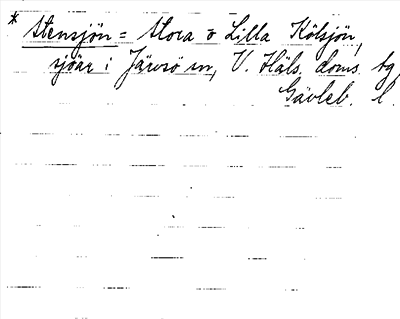 * Stensjön = Stora o Lilla Kölsjön,
sjöar i Järvsö sn, V. Häls. doms. tg
Gävleb. l.